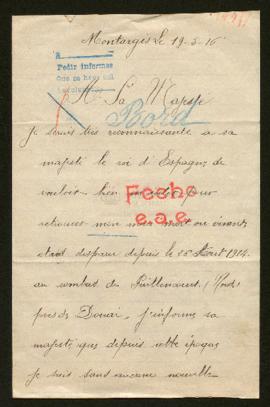 Montargis Le 19-5-16
Pedir informes
A Sa Majesté
Bord
Je serais très reconnaissante a sa
majesté le roi d'Espagne de
vouloir bien pour
Fecho
retrouver mon mari mort ou vivant
e.a.e.
étant disparu depuis le 25 Août 1914
au combat de (Nord)
près de Douai, j'informe sa
majesté que depuis cette époque
je suis sans aucune nouvelle